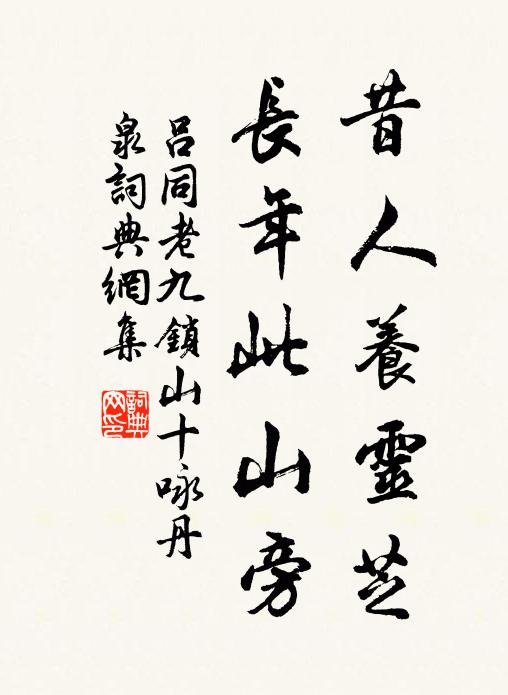 昔人養靈芝
長年此山旁
呂同老九鎖山十咏丹
泉詞典網集
詞典網印